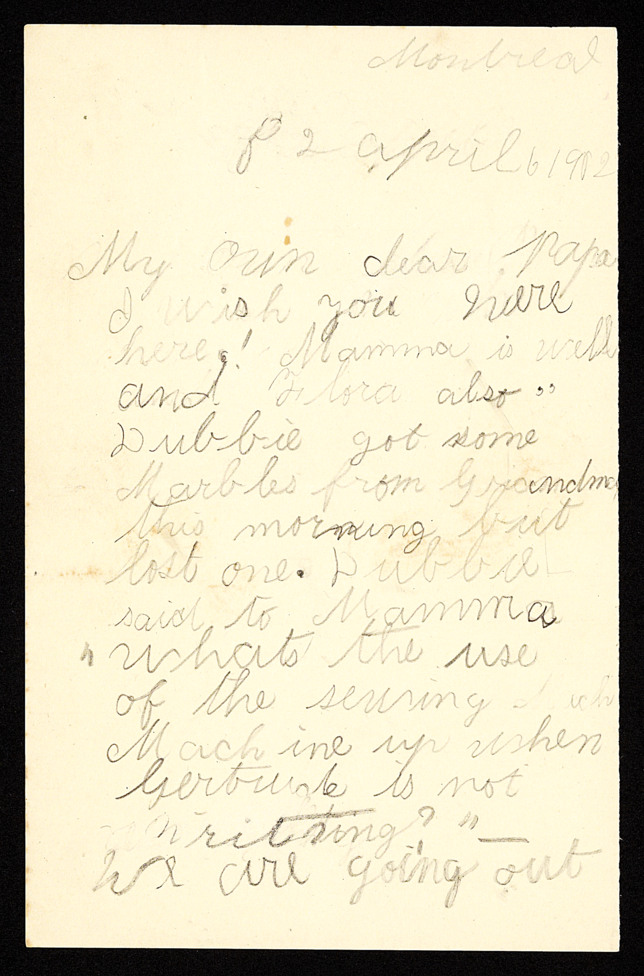 Montreal
2 april 6 1902
My own dear Papa
I wish you here
here! Mamma is well
and Flora also"
Dubbie got some
Marbles from Grandma
this morning but
lost one. Dubbie
said to Mamma
"whats the use
of the sewing Mach
Machine up when
Gertrude is not
Writting?"
We are going out